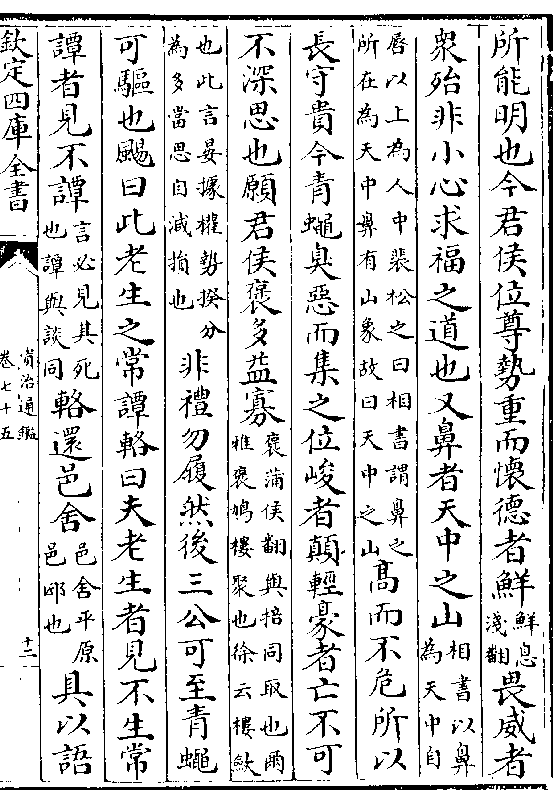 所能明也今君侯位尊勢重而懷德者鮮鮮息淺翻畏威者
衆殆非小心求福之道也又鼻者天中之山相書以鼻為天中自
唇以上為人中裴松之曰相書謂鼻之所在為天中鼻有山象故曰天中之山高而不危所以
長守貴今青蠅臭惡而集之位峻者顛輕豪者亡不可
不深思也願君侯裒多益寡裒蒲侯翻與掊同取也爾雅裒鳩樓聚也徐云樓歛
也此言晏據權勢揆分為多當思自減損也非禮勿履然後三公可至青蠅
可驅也颺曰此老生之常譚輅曰夫老生者見不生常
譚者見不譚言必見其死也譚與談同輅還邑舍邑舍平原邑邸也具以語
欽定四庫全書
資治通鑑
卷七十五
十二